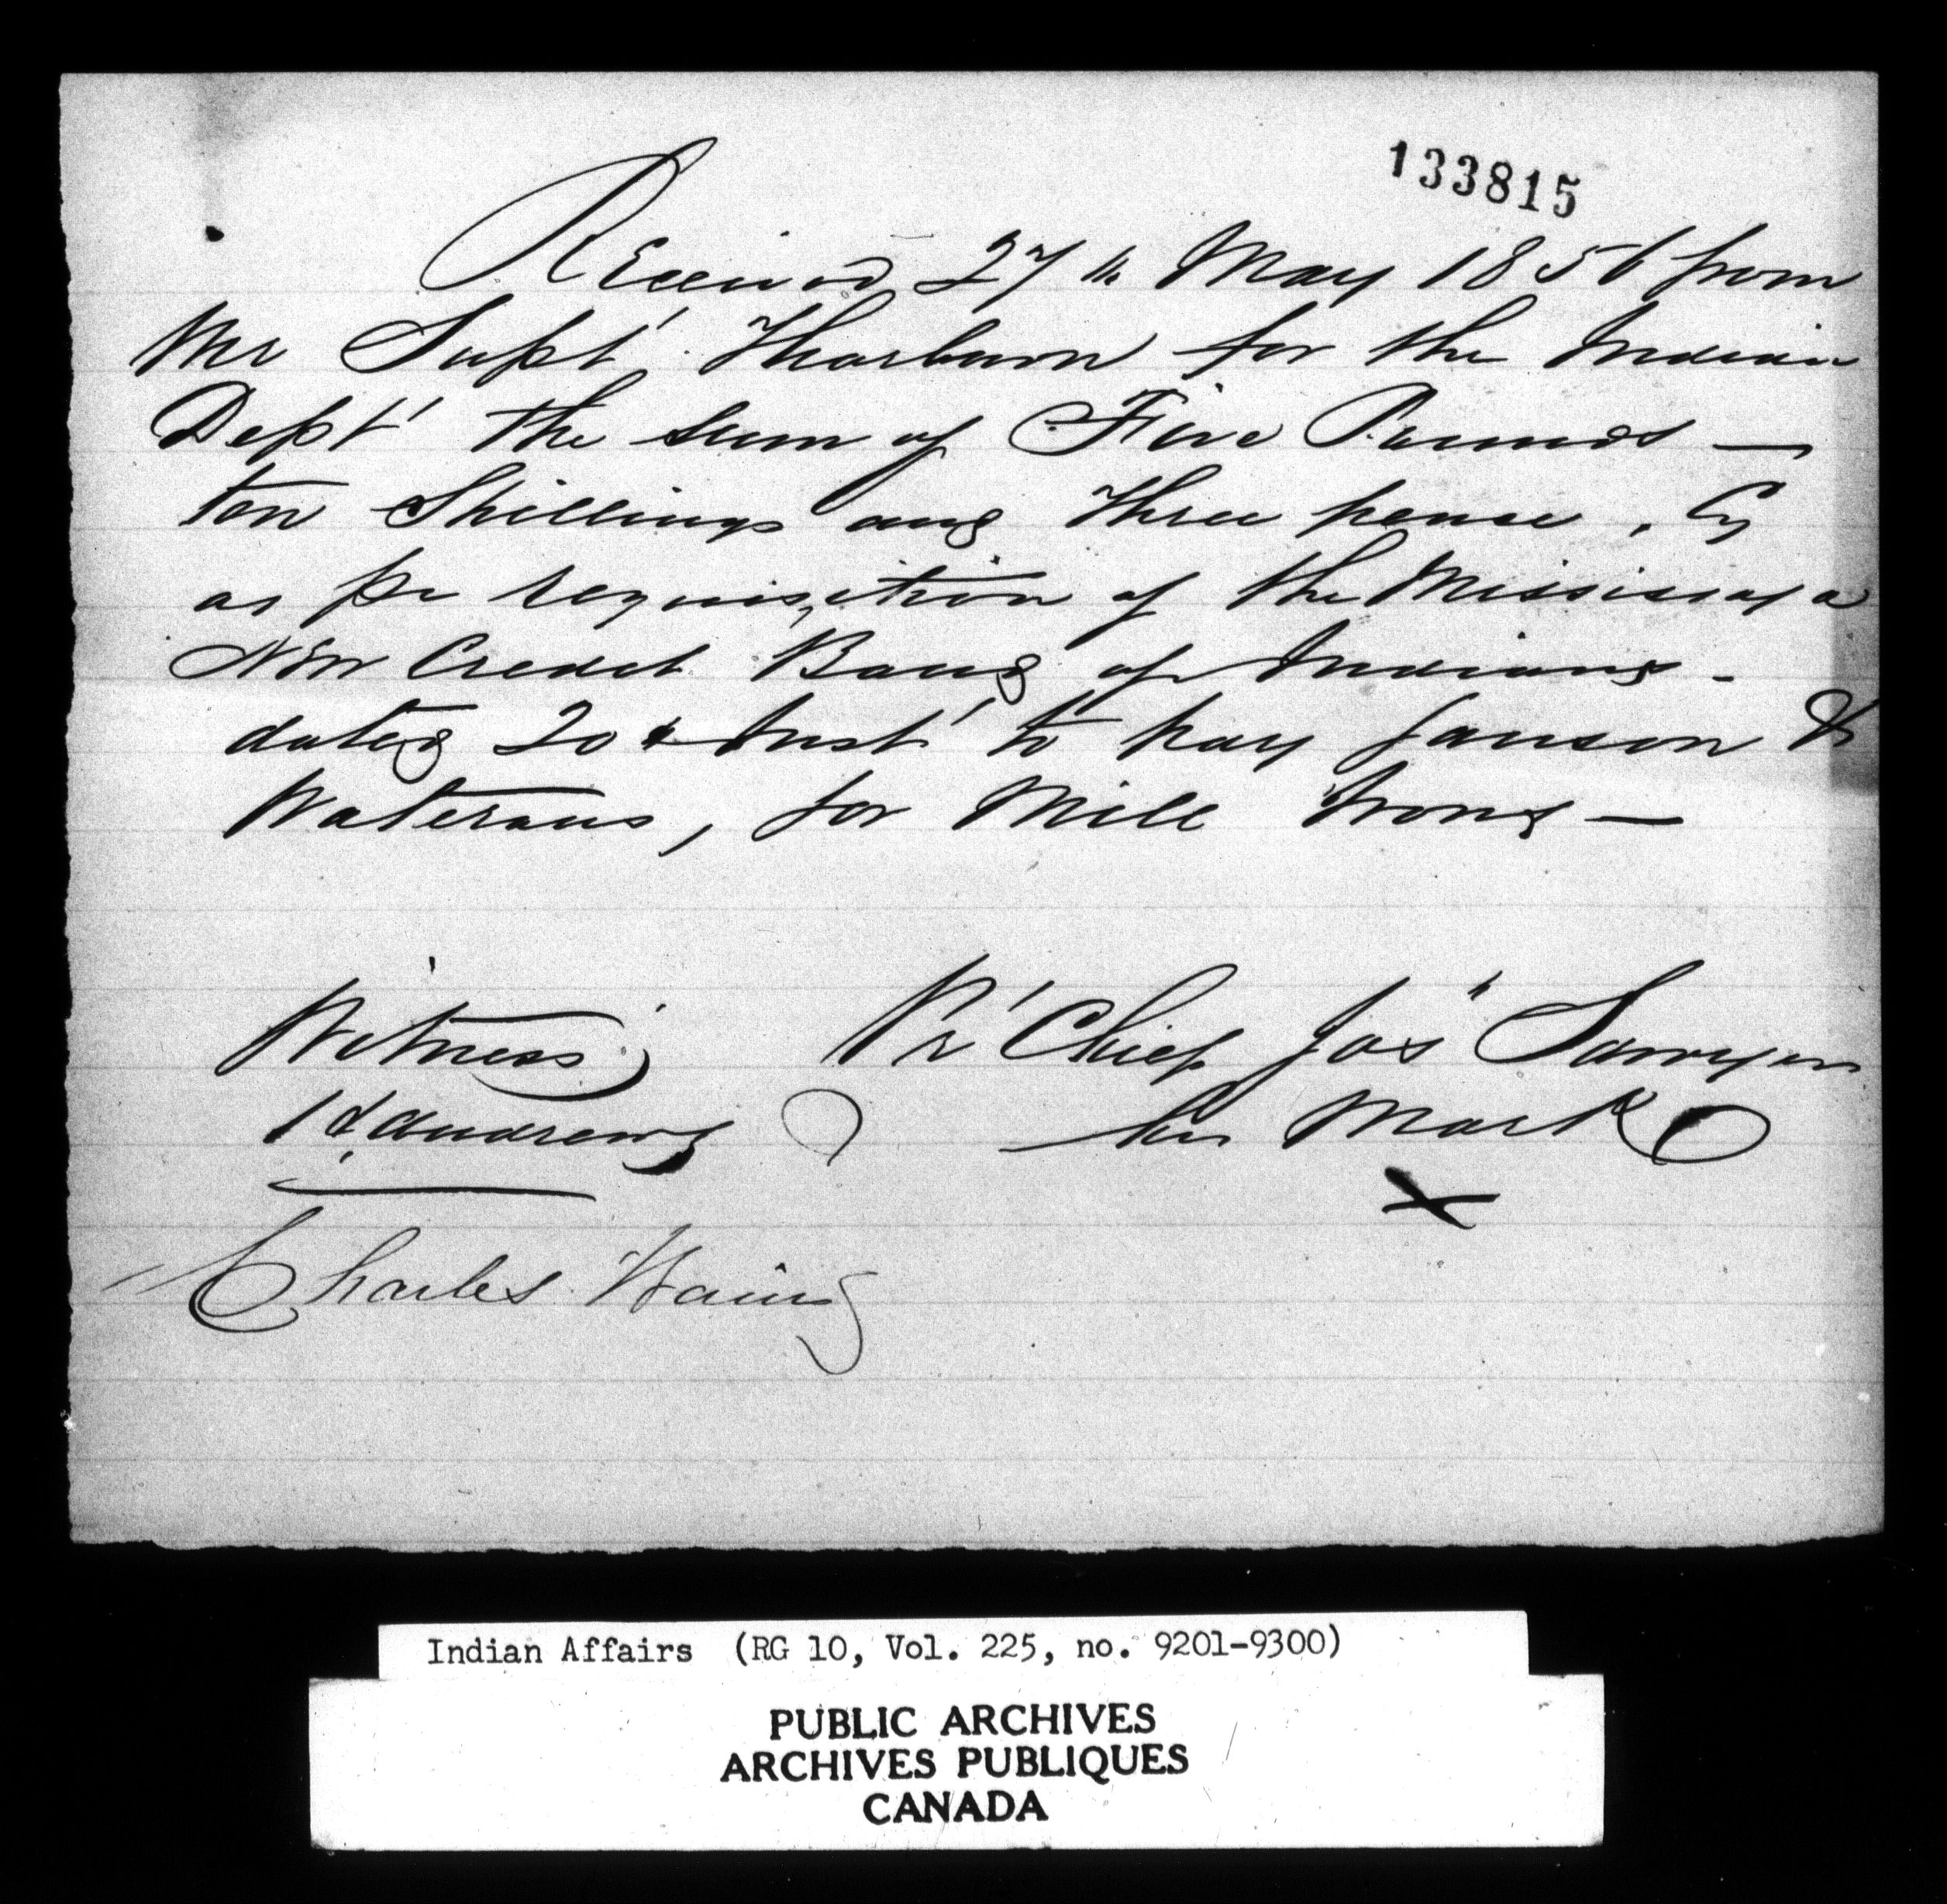 133815
Received 27th May 1856 from
Mr Supt Thorburn for the Indian
Dept the sum of Five Pounds —
ten Shillings and three pence, Cy
as pr requisition of the Mississaga
New Credit Band of Indians -
dated 20 Inst to pay Janson &
Waterous, for Mill Irons —
Witness Pr Chief Jos Sawyer
Andrews his Mark
X
Charles
Indian Affairs (RG 10, Vol. 225, no. 9201-9300)
PUBLIC ARCHIVES
ARCHIVES PUBLIQUES
CANADA